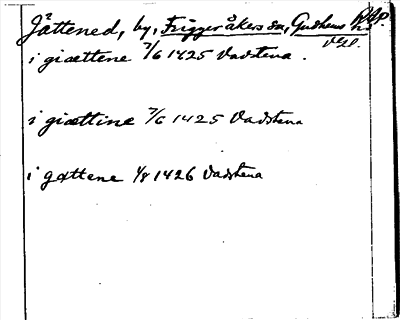 Jättened, by, Friggeråkers sn, Gudhems hd
i giættene 7/6 1425 Vadstena.
i giættine 7/6 1425 Vadstena
i gættene 1/8 1426 Vadstena